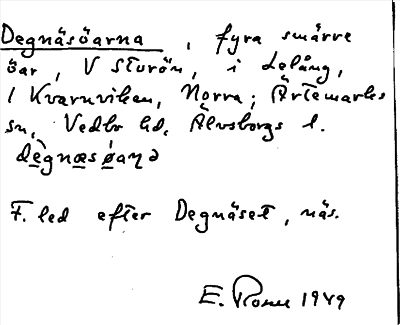 Degnäsöarna, fyra smärre
öar, V Storön, i Lelång,
/ Kvarnviken, Norra; Ärtemarks
sn, Vedbo hd, Älvsborgs l.
dègnæsøaɳə
F. led efter Degnäset, näs.
E. 1949